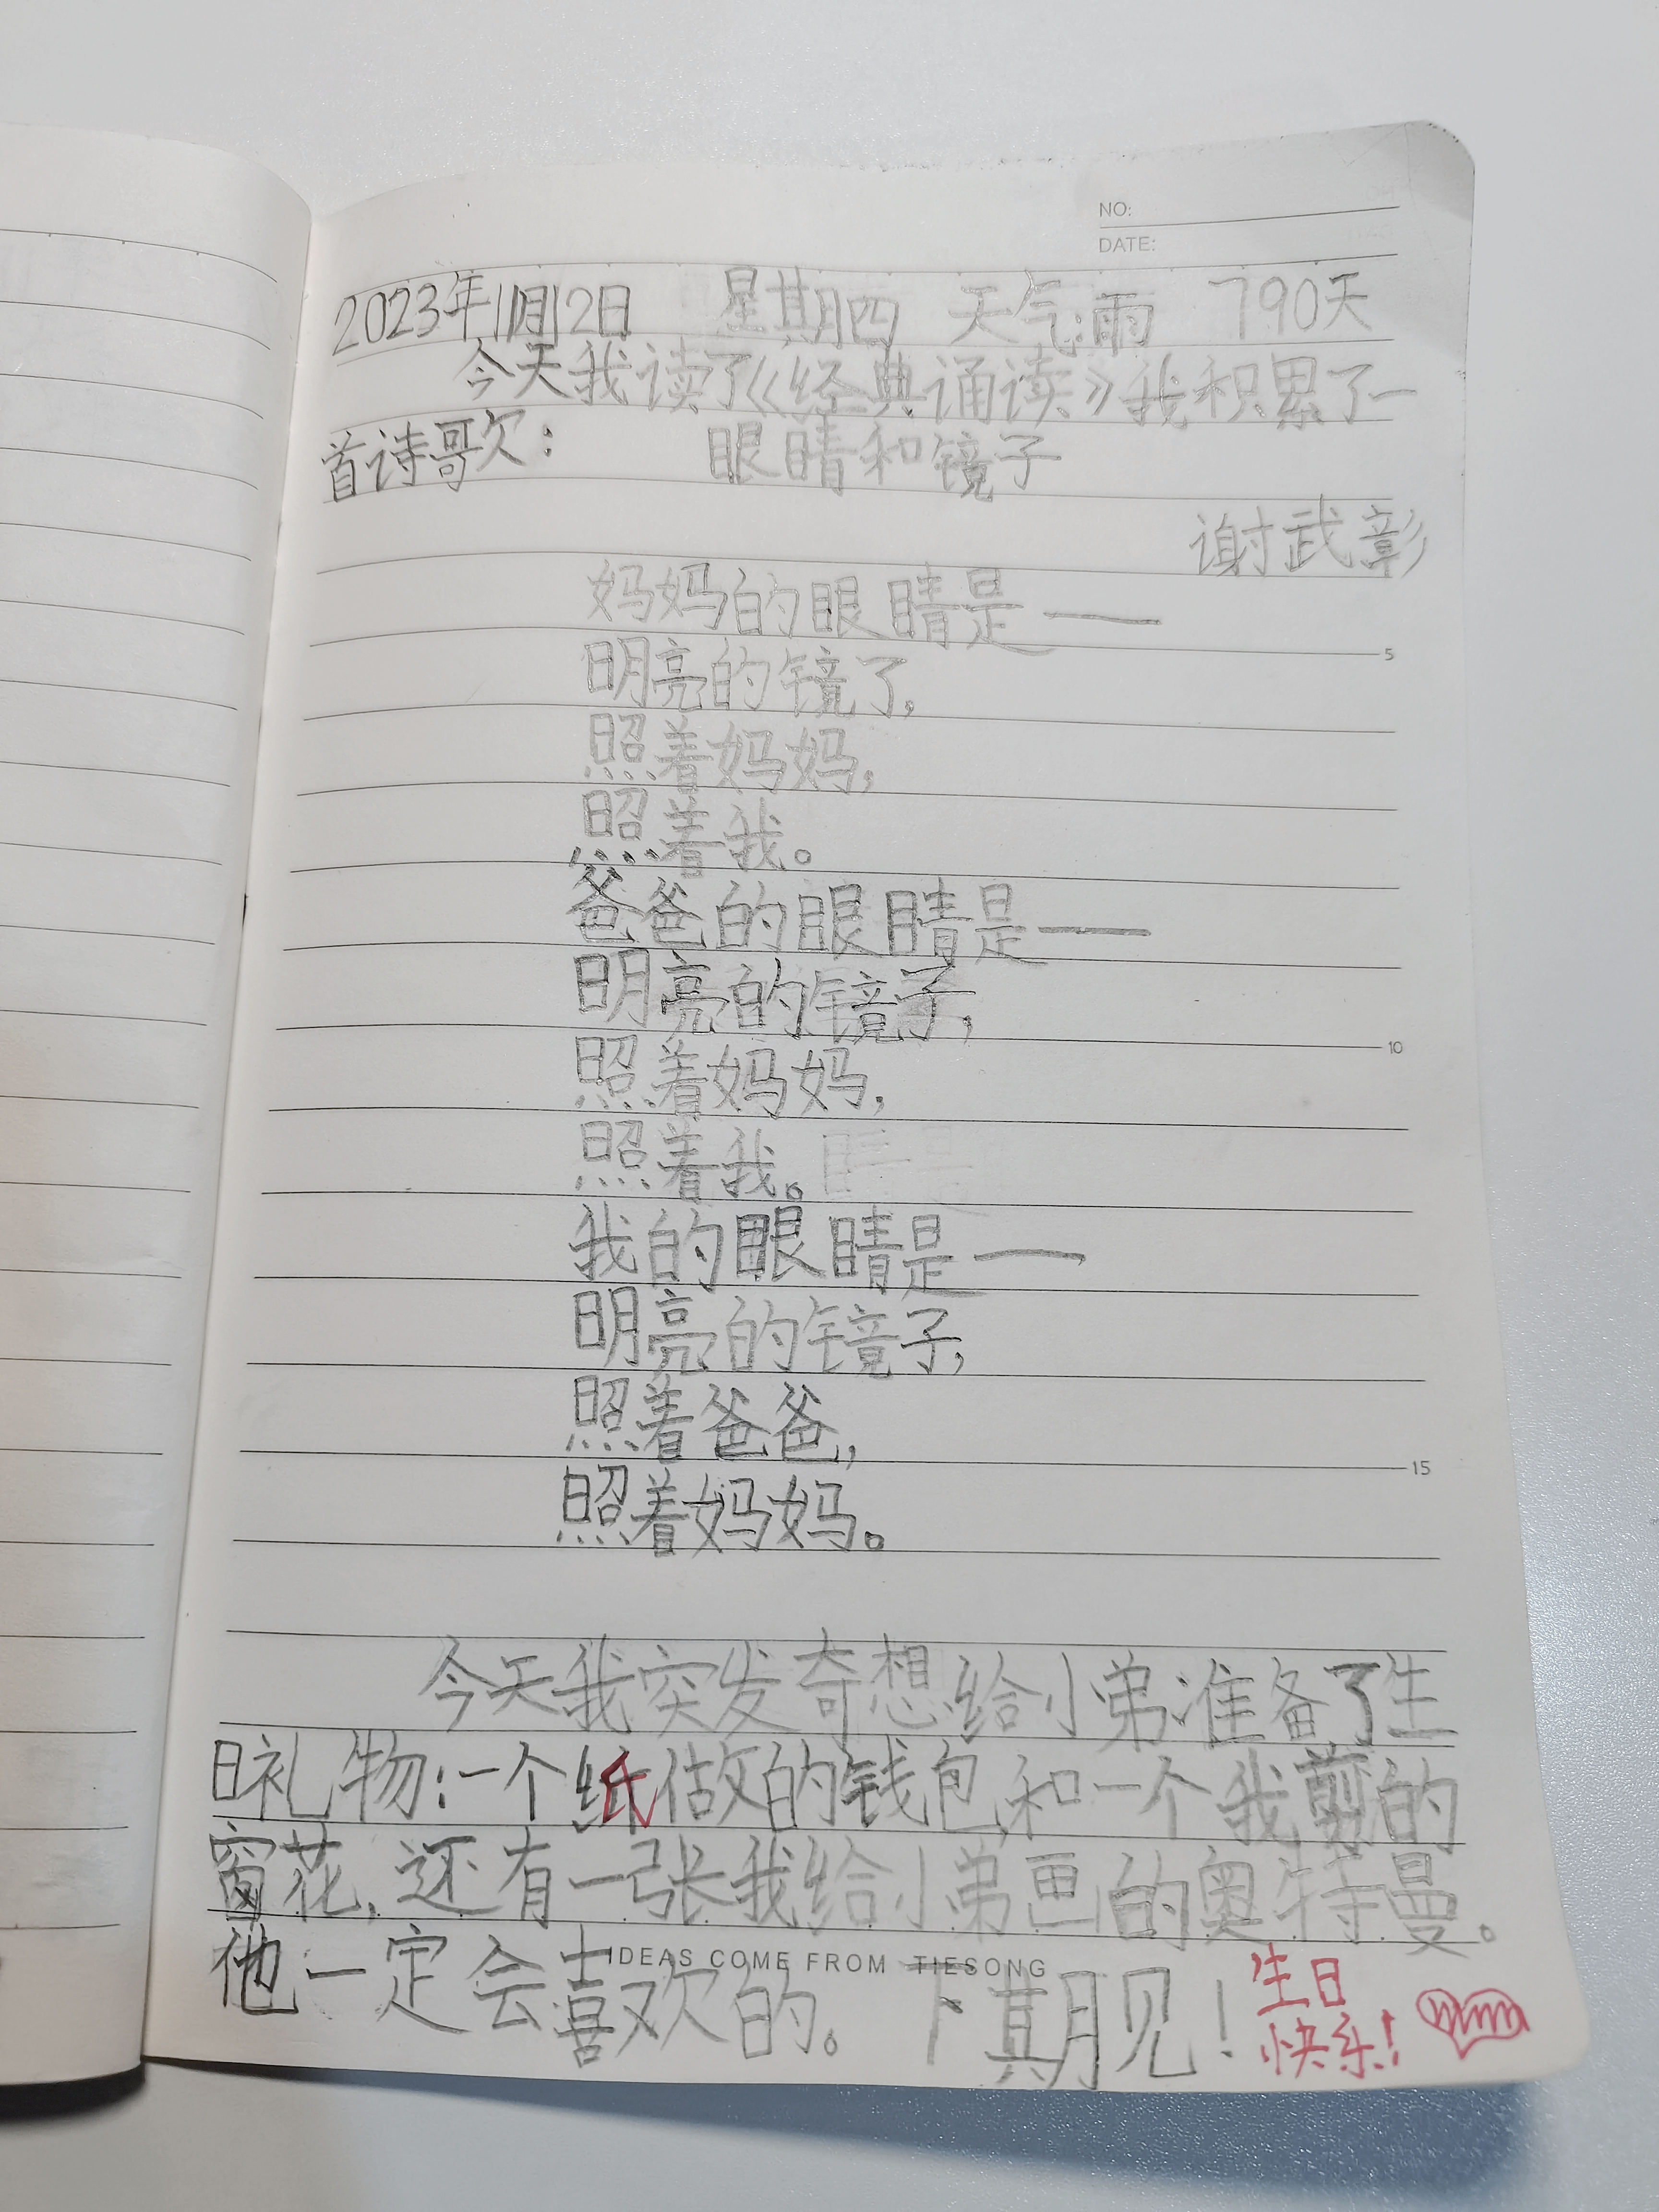 NO:
DATE:
2023年11月12日 星期四 天气:雨 790天
今天我读了《经典诵读》我积累了一
首诗歌欠: 眼睛和镜子
谢武彰
妈妈的眼睛是——
5
明亮的镜了,
照着妈妈,
照着我。
爸爸的眼睛是——
明亮的镜子,
10
照着妈妈,
照着我。
我的眼睛是——
明亮的镜子,
照着爸爸,
15
照着妈妈。
今天我突发奇想给小弟准备了生
日礼物:一个纸做的钱包,和一个我剪的
窗花,还有一张我给小弟画的奥特曼。
他一定会喜欢的。下期见!
IDEAS COME FROM TIESONG
生日
快乐!